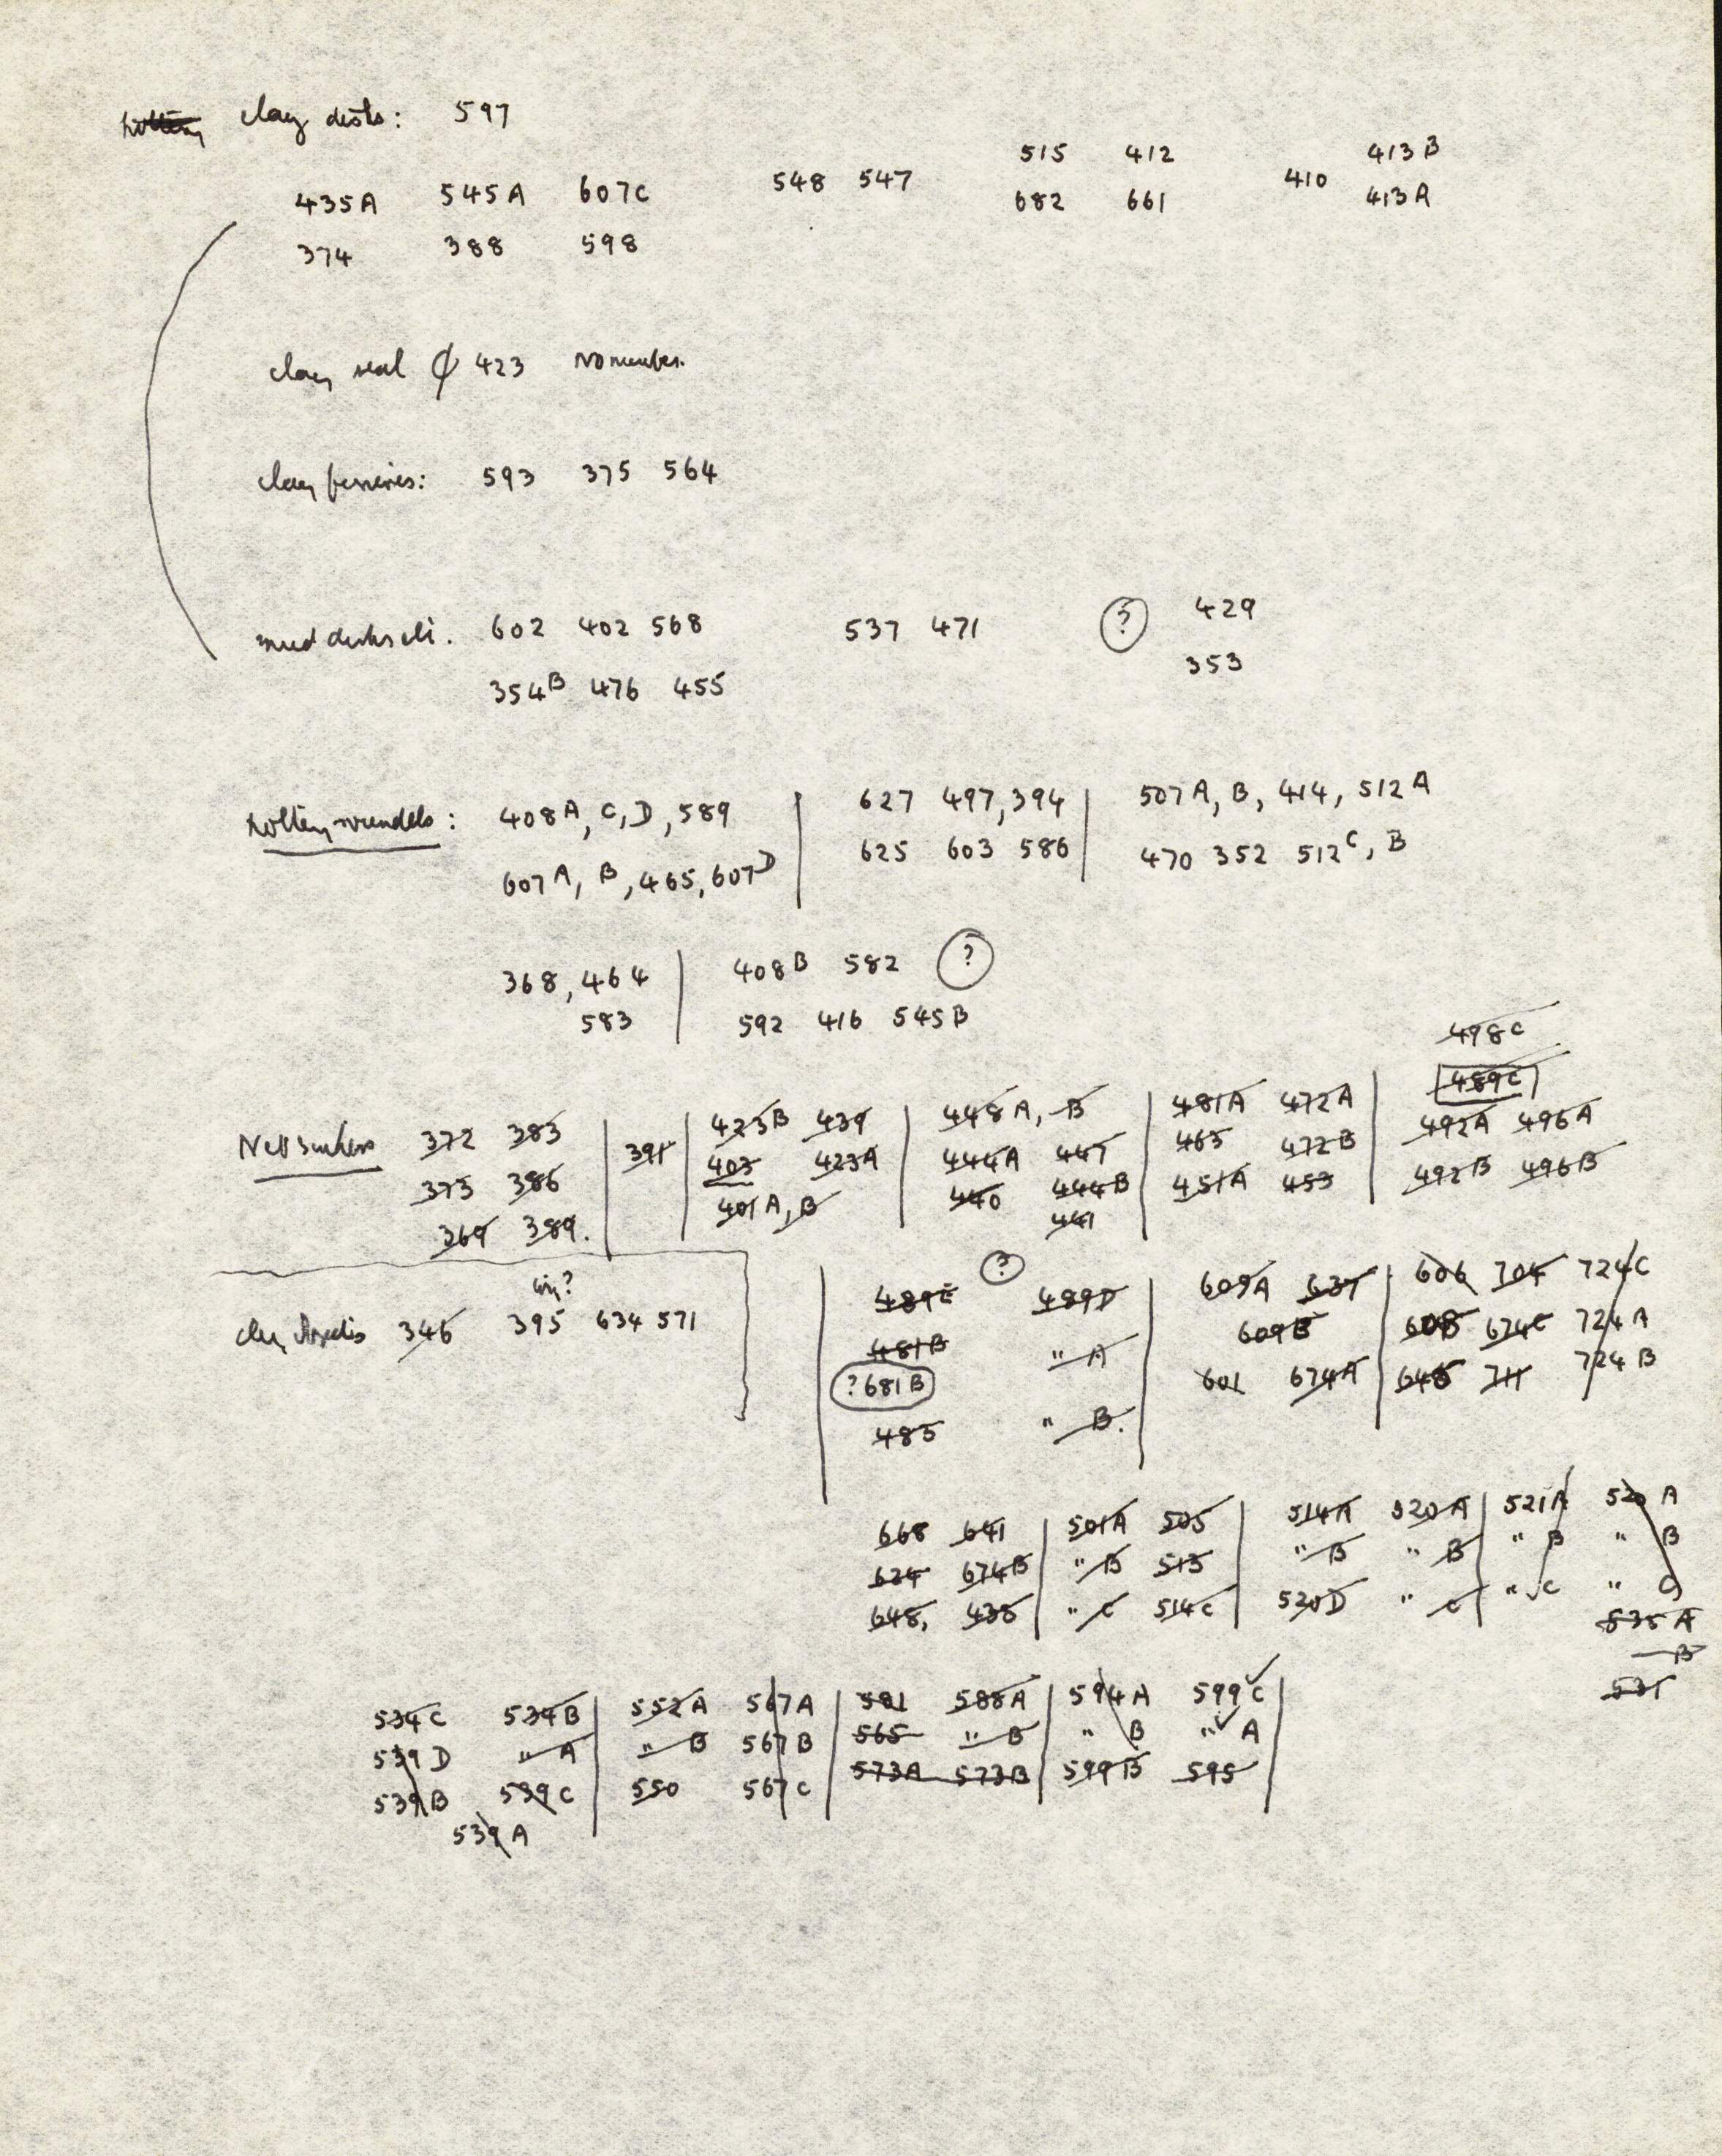 pottery clay disks: 597
435A 545A 607C 548 547 515 412 410 413B
374 388 598 682 661 413A
clay seal 423 No number.
clay 593 375 564
mud disks 602 402 568 537 471 ? 429
354B 476 455 353
Pottery roundels: 408A, C, D, 589 627 497, 394 507A, B, 414, 512A
607A, B, 465, 607D 625 603 586 470 352 512C, B
368, 464 408B 582 ?
583 592 416 545B
498C
489C
Net sinkers 372 383 391 423B 439 448A, B 481A 472A 492A 496A
373 386 403 423A 444A 447 463 472B 492B 496B
369 389. 401A, B 440 444B 451A 453
441
?
489E 489D 609A 637 606 704 724C
clay 346 395 634 571 481B " A 609B 608 674C 724A
? 681B 601 674A 645 711 724B
485 " B.
668 641 501A 505 514A 520A 521A 520A
624 674B " B 513 " B " B " B " B
648, 438 " C 514C 520D " C " C " C
535A
B
531
534C 534B 552A 567A 581 588A 594A 599C
539D " A " B 567B 565 " B " B " A
539B 539C 550 567C 573A 573B 599B 595
539A